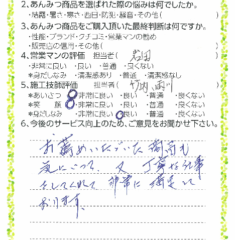 2.あんみつ商品を選ばれた際の悩みは何でしたか。
・結露・寒さ・暑さ・西日・防犯・騒音・その他( )
3.あんみつ商品をご購入頂いた最終判断は何ですか。
・性能・ブランド・クチコミ・営業マンの勧め
・販売店の信用・その他( )
4.営業マンの評価 担当者( )
・非常に良い ・良い ・普通 ・良くない
*身だしなみ ・清潔感あり ・普通 ・清潔感なし
5.施工技師評価 担当者( )
*あいさつ 8非常に良い ・良い ・普通 ・良くない
*笑 顔 ・非常に良い ・良い ・普通 ・良くない
*身だしなみ ・非常に良い ・良い ・普通 ・良くない
6.今後のサービス向上のため、ご意見をお聞かせ下さい。
お薦めいただいた商品も
気に入って 又 丁寧な仕事
をしてくれて 非常に 満足して
おります。